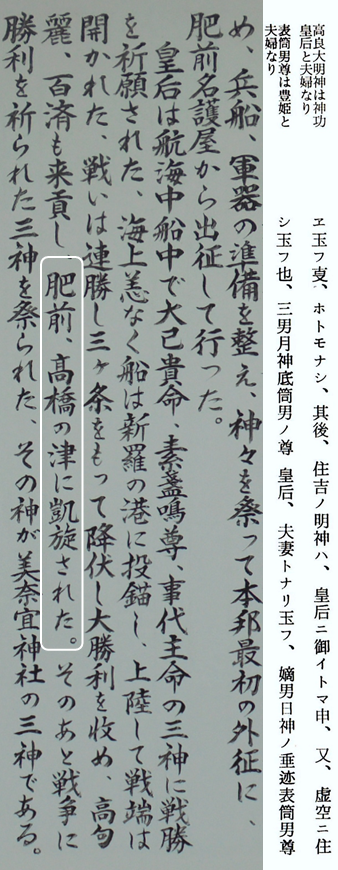 高良大明神は神功
皇后と夫婦なり
表筒男尊は豊姫と
夫婦なり
ヱ玉フ㕝、ホトモナシ、其後、住吉ノ明神ハ、皇后ニ御イトマ申、又、虚空ニ住
シ玉フ也、三男月神底筒男ノ尊 皇后、夫妻トナリ玉フ、嫡男日神ノ垂迹表筒男尊
め、兵船、軍器の準備を整え、神々を祭って本邦最初の外征に、
肥前名護屋から出征して行った。
皇后は航海中船中で大已貴命、素盞鳴尊、事代主命の三神に戦勝
を祈願された、海上恙なく船は新羅の港に投錨し、上陸して戦端は
開かれた、戦いは連勝し三ヶ条をもって降伏し大勝利を收め、高句
麗、百済も来貢し、肥前、高橋の津に凱旋された。そのあと戦争に
勝利を祈られた三神を祭られた、その神が美奈宜神社の三神である。